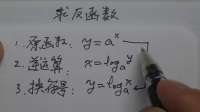 求反函数
1.原函数: y=aˣ
2.逆运算: x=logₐy
3.换符号: y=logₐx